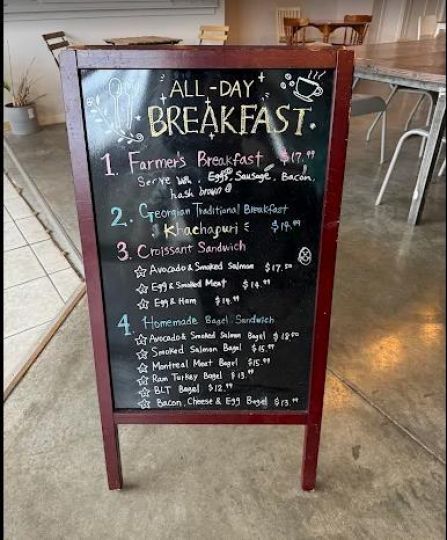 ALL-DAY
BREAKFAST
1. Farmer's Breakfast $17.99
Serve w/ Eggs, Sausage, Bacon,
hash brown
2. Georgian Traditional Breakfast
Khachapuri $14.99
3. Croissant Sandwich
Avocado & Smoked Salmon $17.50
Egg & Smoked Meat $14.99
Egg & Ham $14.99
4. Homemade Bagel Sandwich
Avocado & Smoked Salmon Bagel $18.50
Smoked Salmon Bagel $15.99
Montreal Meat Bagel $15.99
Ram Turkey Bagel $13.99
BLT Bagel $12.99
Bacon, Cheese & Egg Bagel $13.99